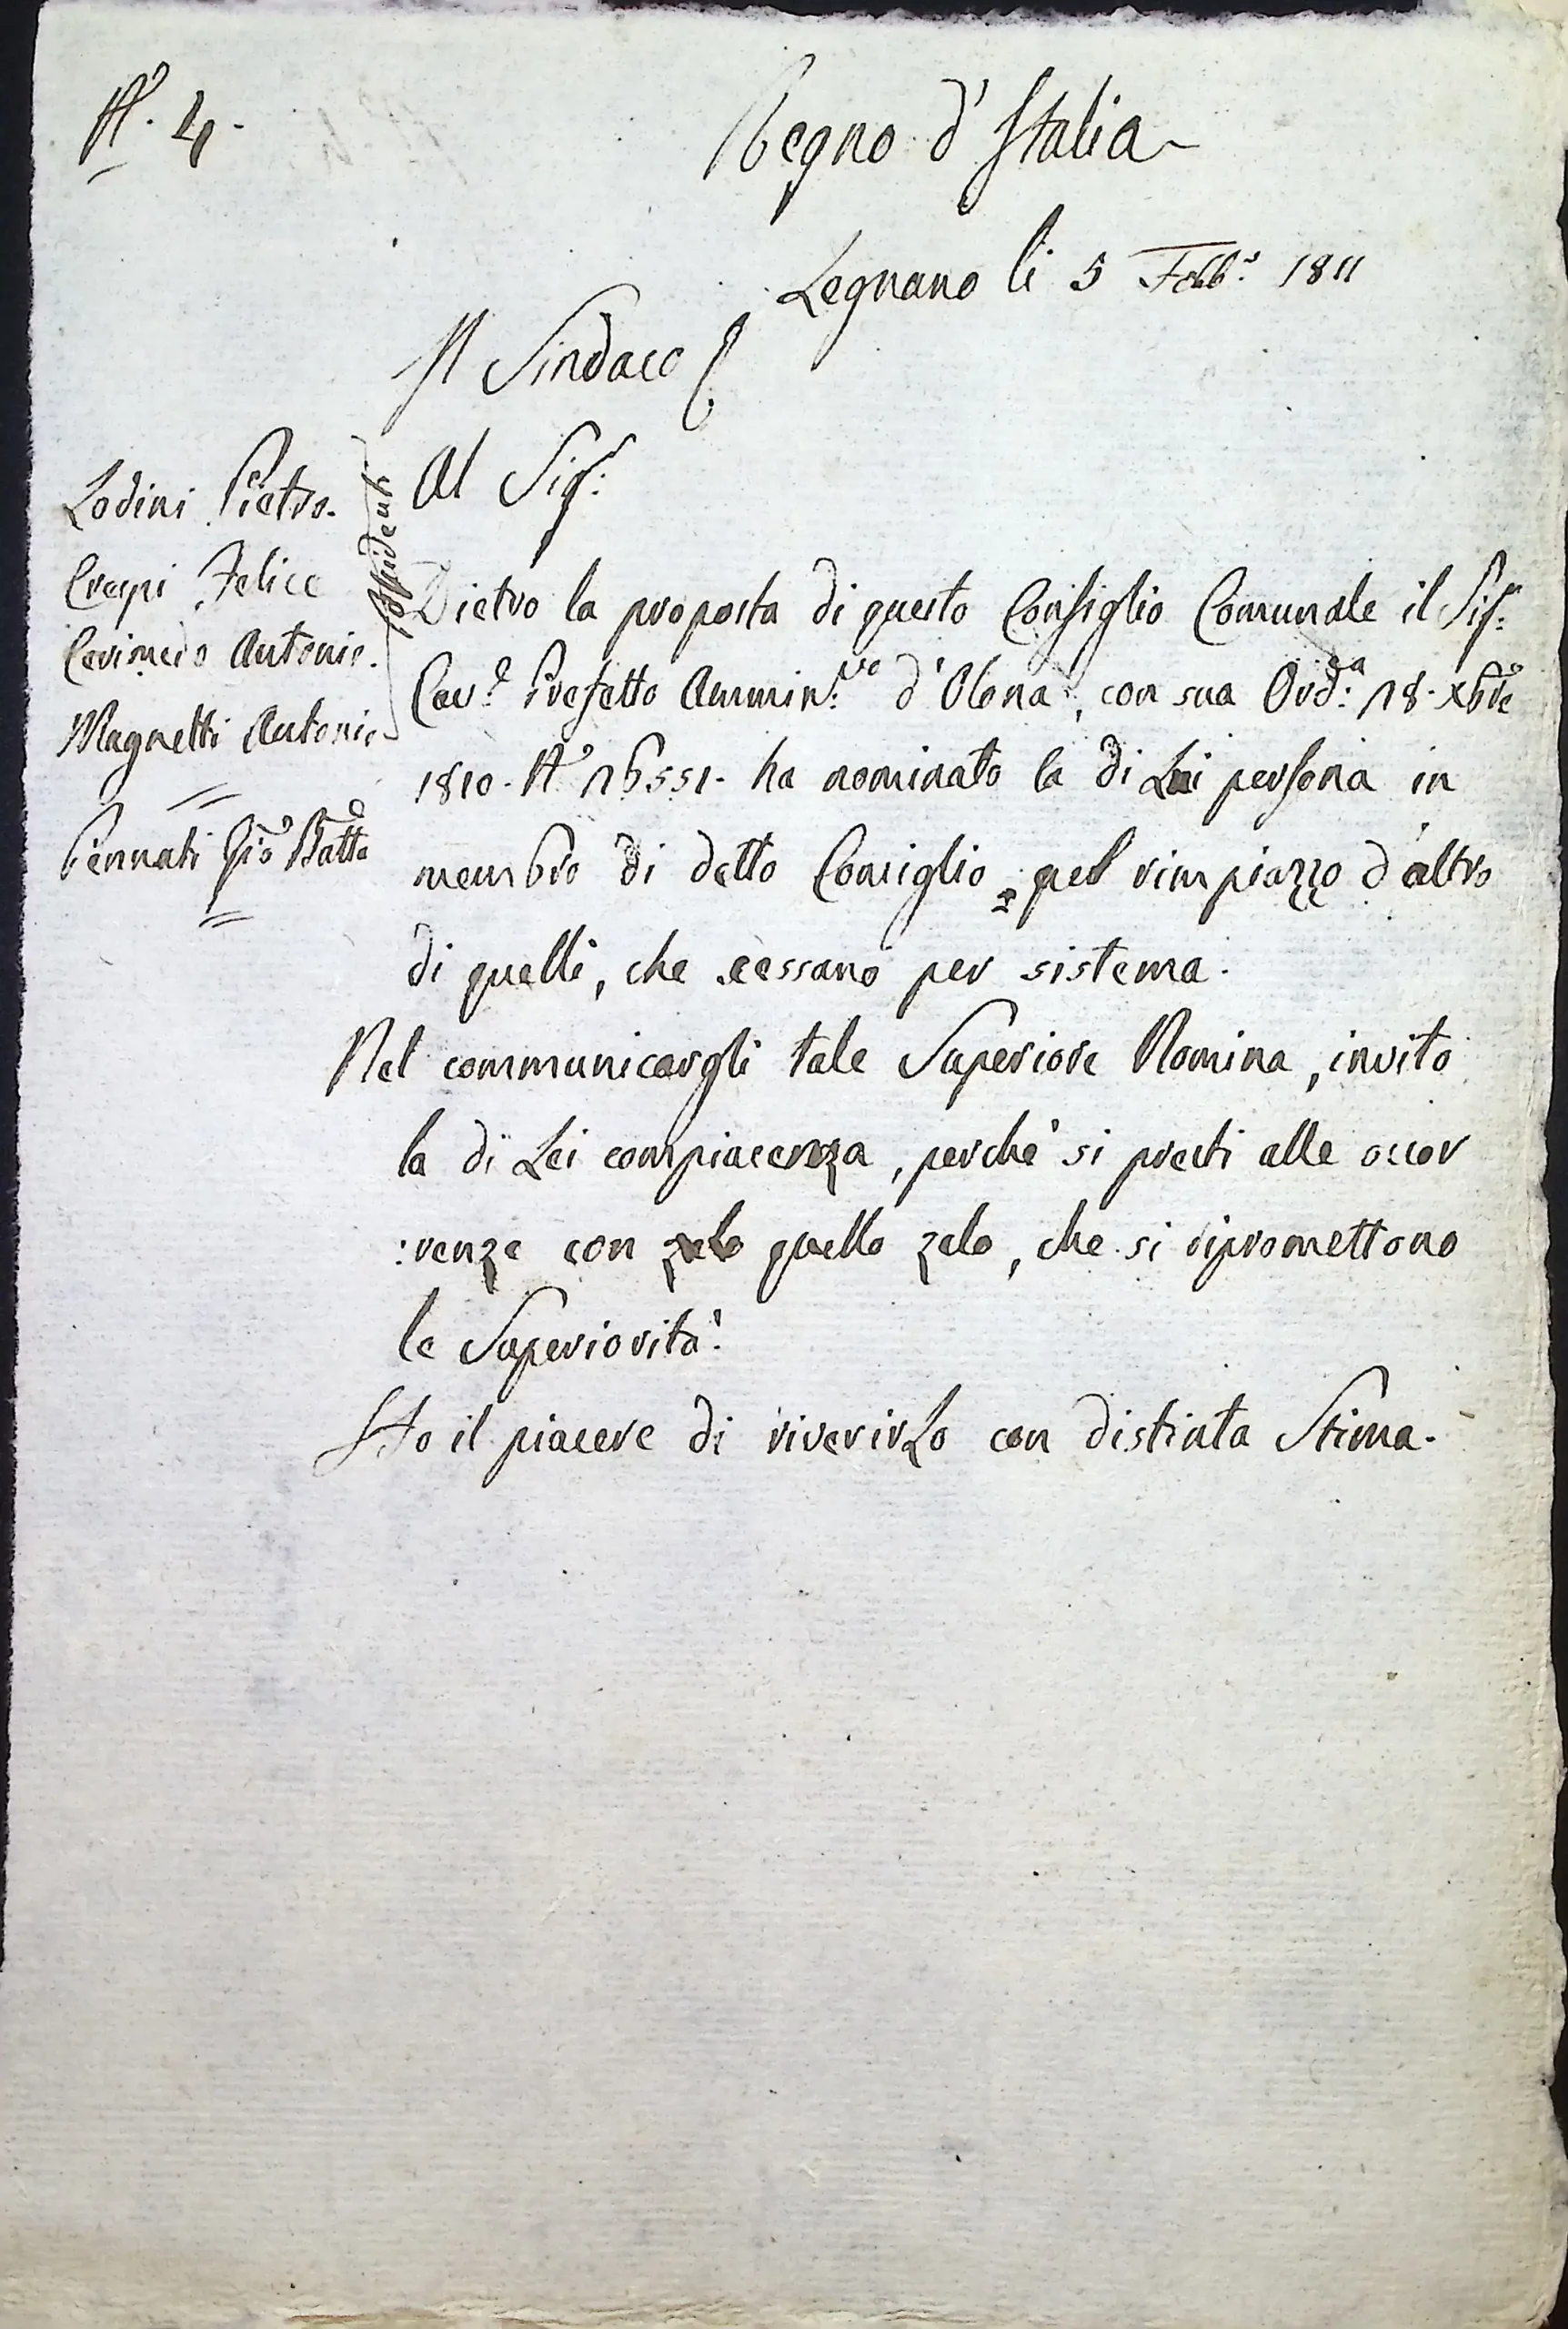 N.º 4.
Regno d'Italia
Legnano li 5 Febb.º 1811
Il Sindaco
Al Sig.r
Lodini Pietro.
Crespi Felice
Antonio.
Magnetti Antonio
Possidenti
Pennati Gio Batta
Dietro la proposta di questo Consiglio Comunale il Sig.r
Cav.e Prefetto Ammin.vo d'Olona, con sua Ord.a 18. xbre
1810. N.º 16551. ha nominato la di Lei persona in
membro di detto Consiglio pel rimpiazzo d'altro
di quelli, che cessano per sistema.
Nel communicargli tale Superiore Nomina, invito
la di Lei compiacenza, perchè si presti alle occor
:renze con zelo quello zelo, che si ripromettono
le Superiorità.
Ho il piacere di riverirLo con distinta Stima.